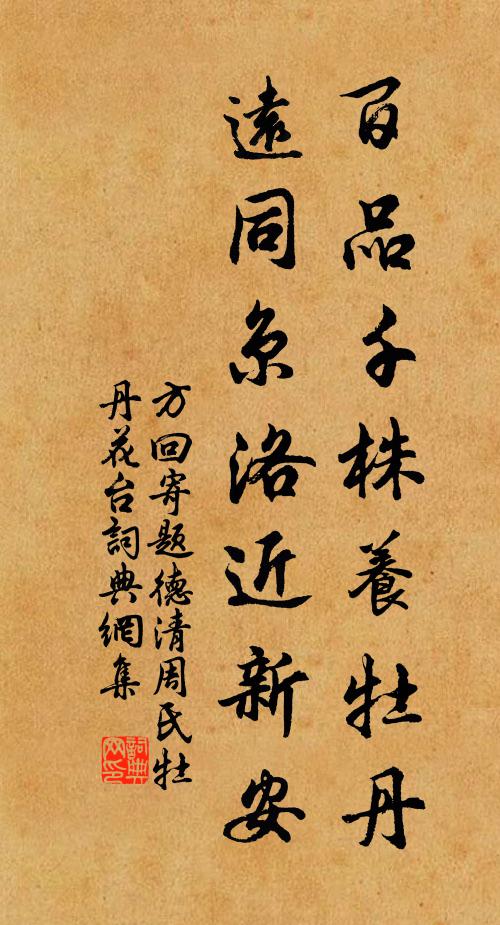 百品千株養牡丹
遠同京洛近新安
方回寄題德清周氏牡
丹花台詞典網集
詞典網印